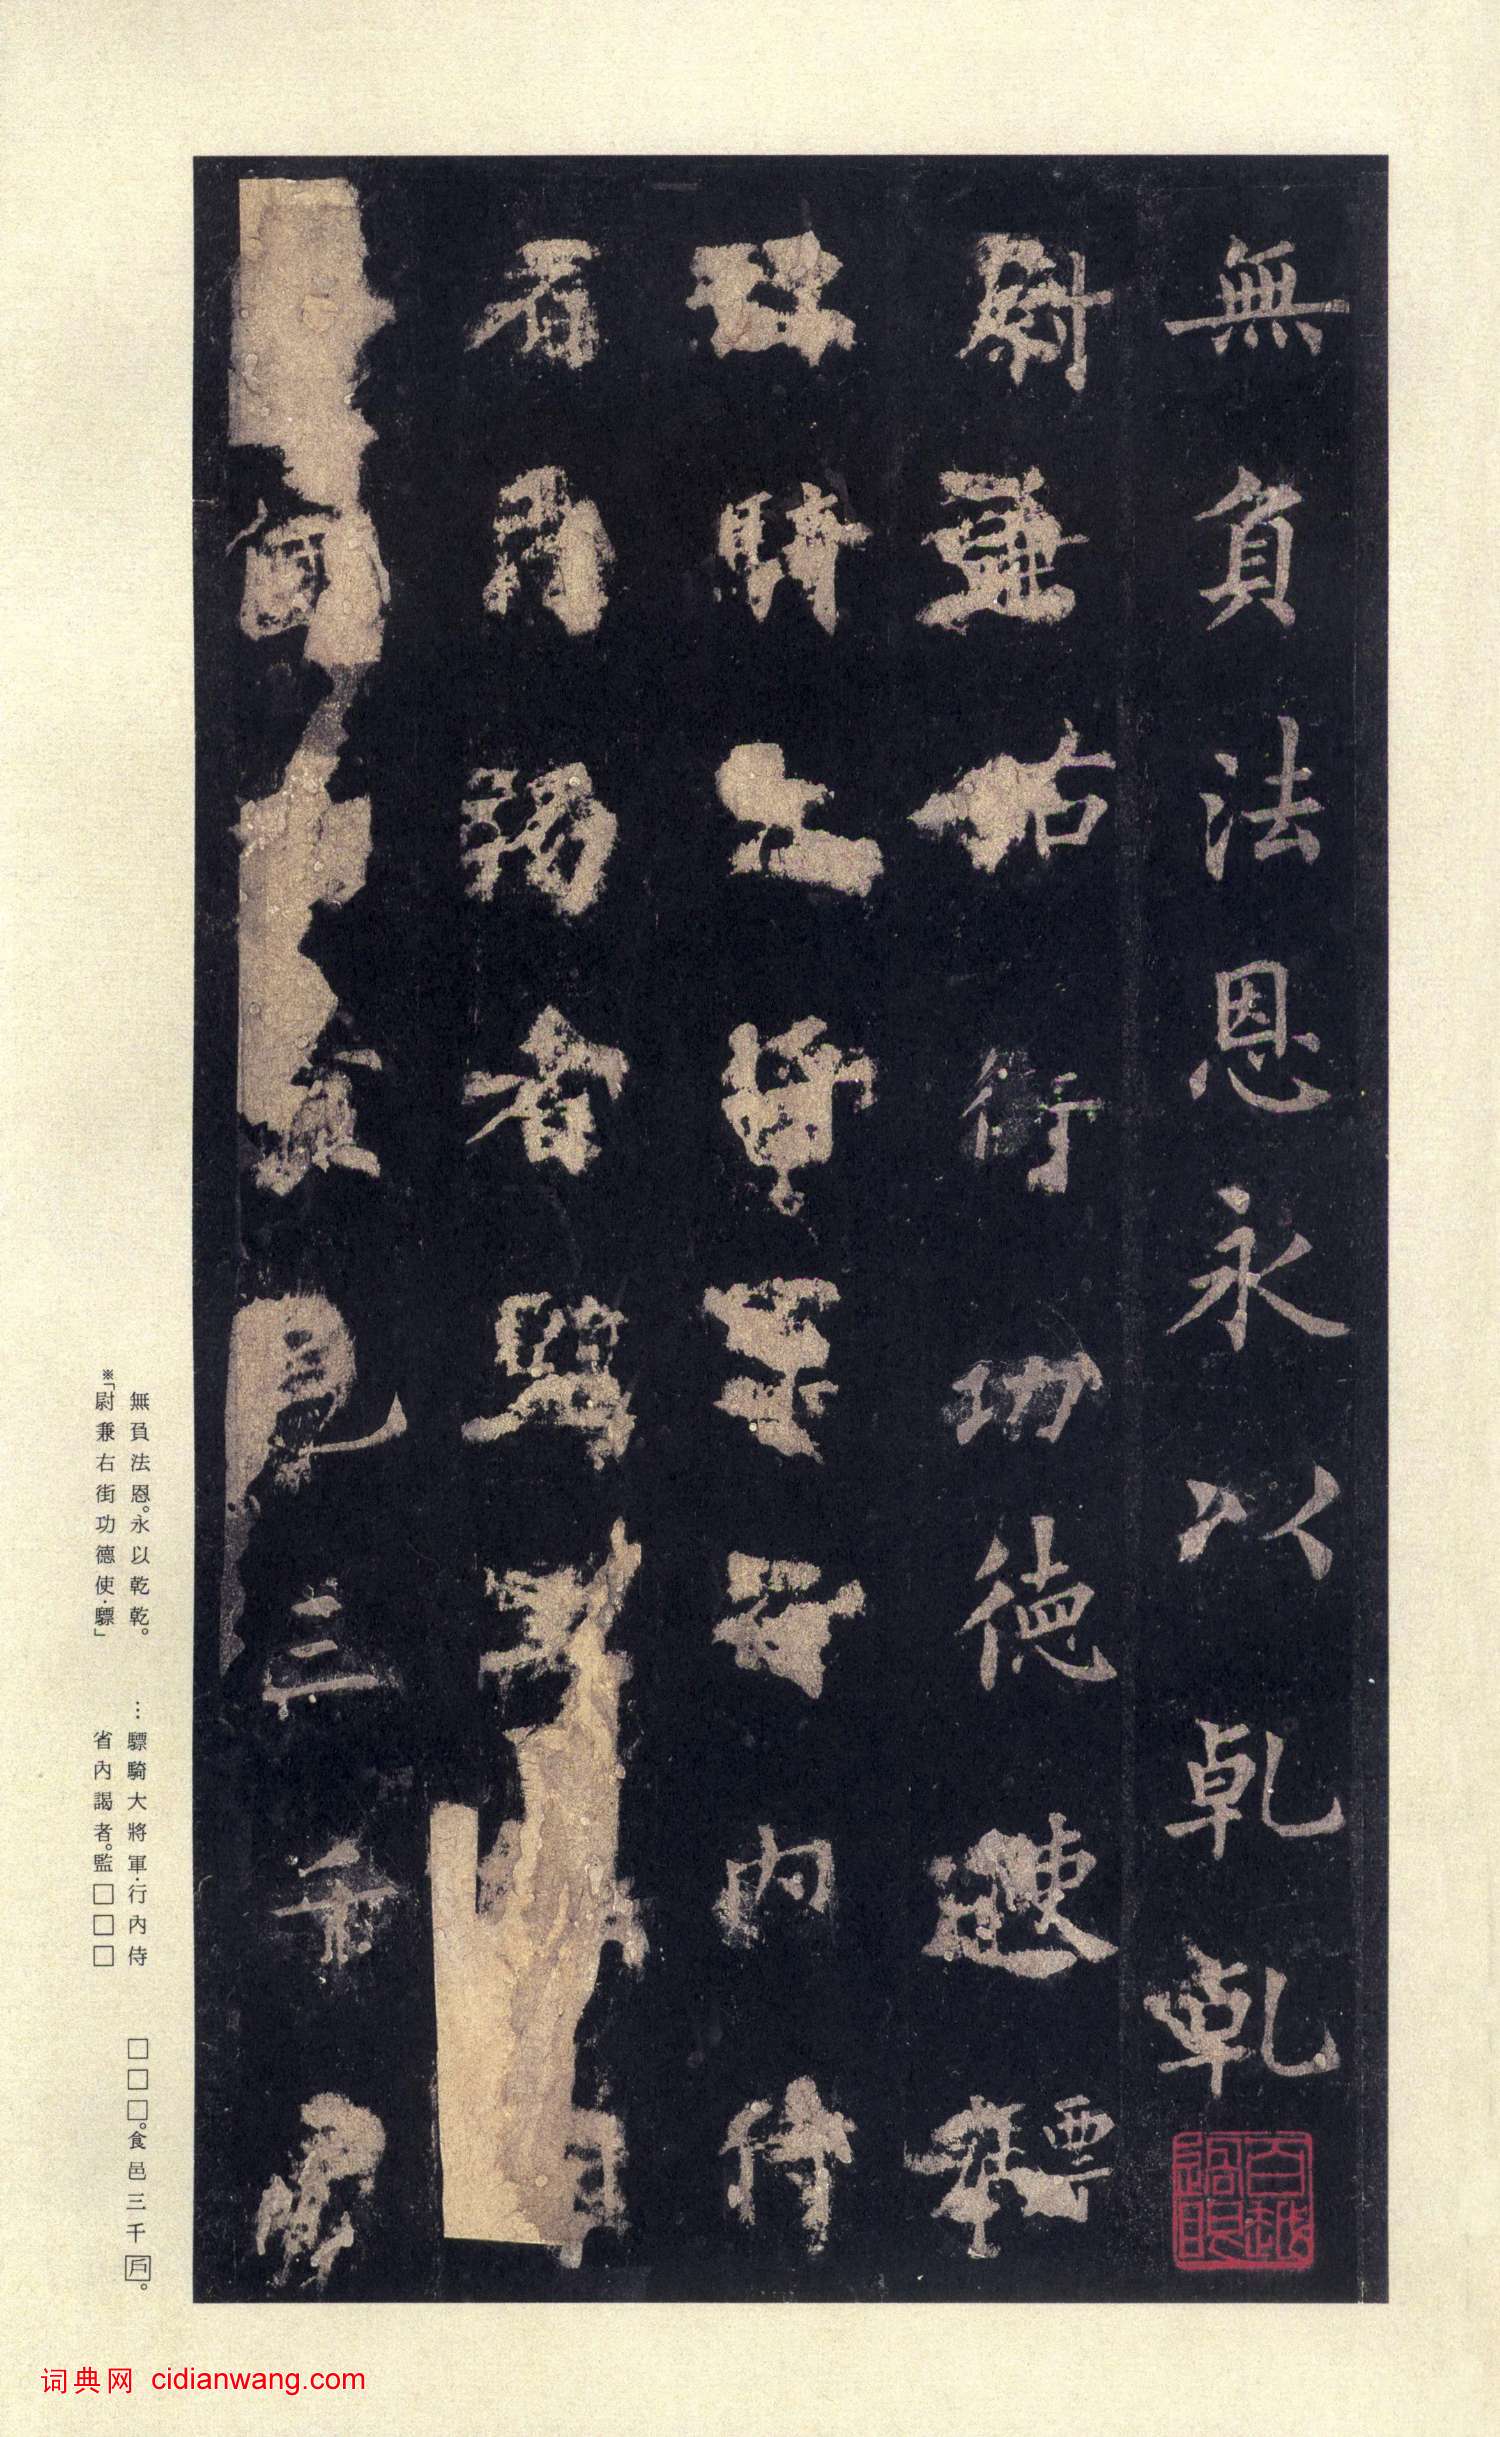 無負法恩永以乾乾
尉兼右街功德使驃
騎大將軍行內侍
省內謁者監
食邑三千
無負法恩。永以乾乾。
※「尉兼右街功德使·驃」
…驃騎大將軍·行內侍
省內謁者。監□□□
□□□。食邑三千戶。
词典网 cidianwang.com